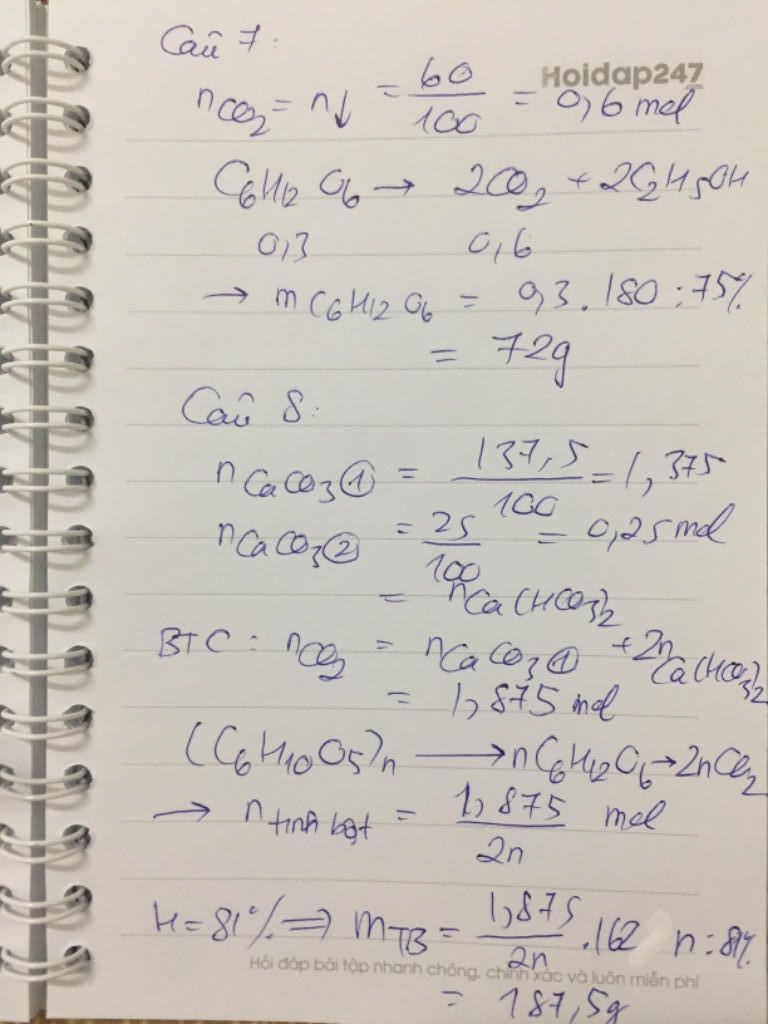 Câu 7:
Hoidap247
nCO₂ = n↓ = 60/100 = 0,6 mol
C₆H₁₂O₆ → 2CO₂ + 2C₂H₅OH
0,3 0,6
→ mC₆H₁₂O₆ = 0,3 . 180 : 75%
= 72g
Câu 8:
nCaCO₃① = 137,5/100 = 1,375
nCaCO₃② = 25/100 = 0,25 mol
= nCa(HCO₃)₂
BTC : nCO₂ = nCaCO₃① + 2nCa(HCO₃)₂
= 1,875 mol
(C₆H₁₀O₅)n ⟶ nC₆H₁₂O₆ → 2nCO₂
→ n tinh bột = 1,875/2n mol
H = 81% ⇒ mTB = 1,875/2n . 162 n : 81%
Hỏi đáp bài tập nhanh chóng, chính xác và luôn miễn phí
= 187,5g